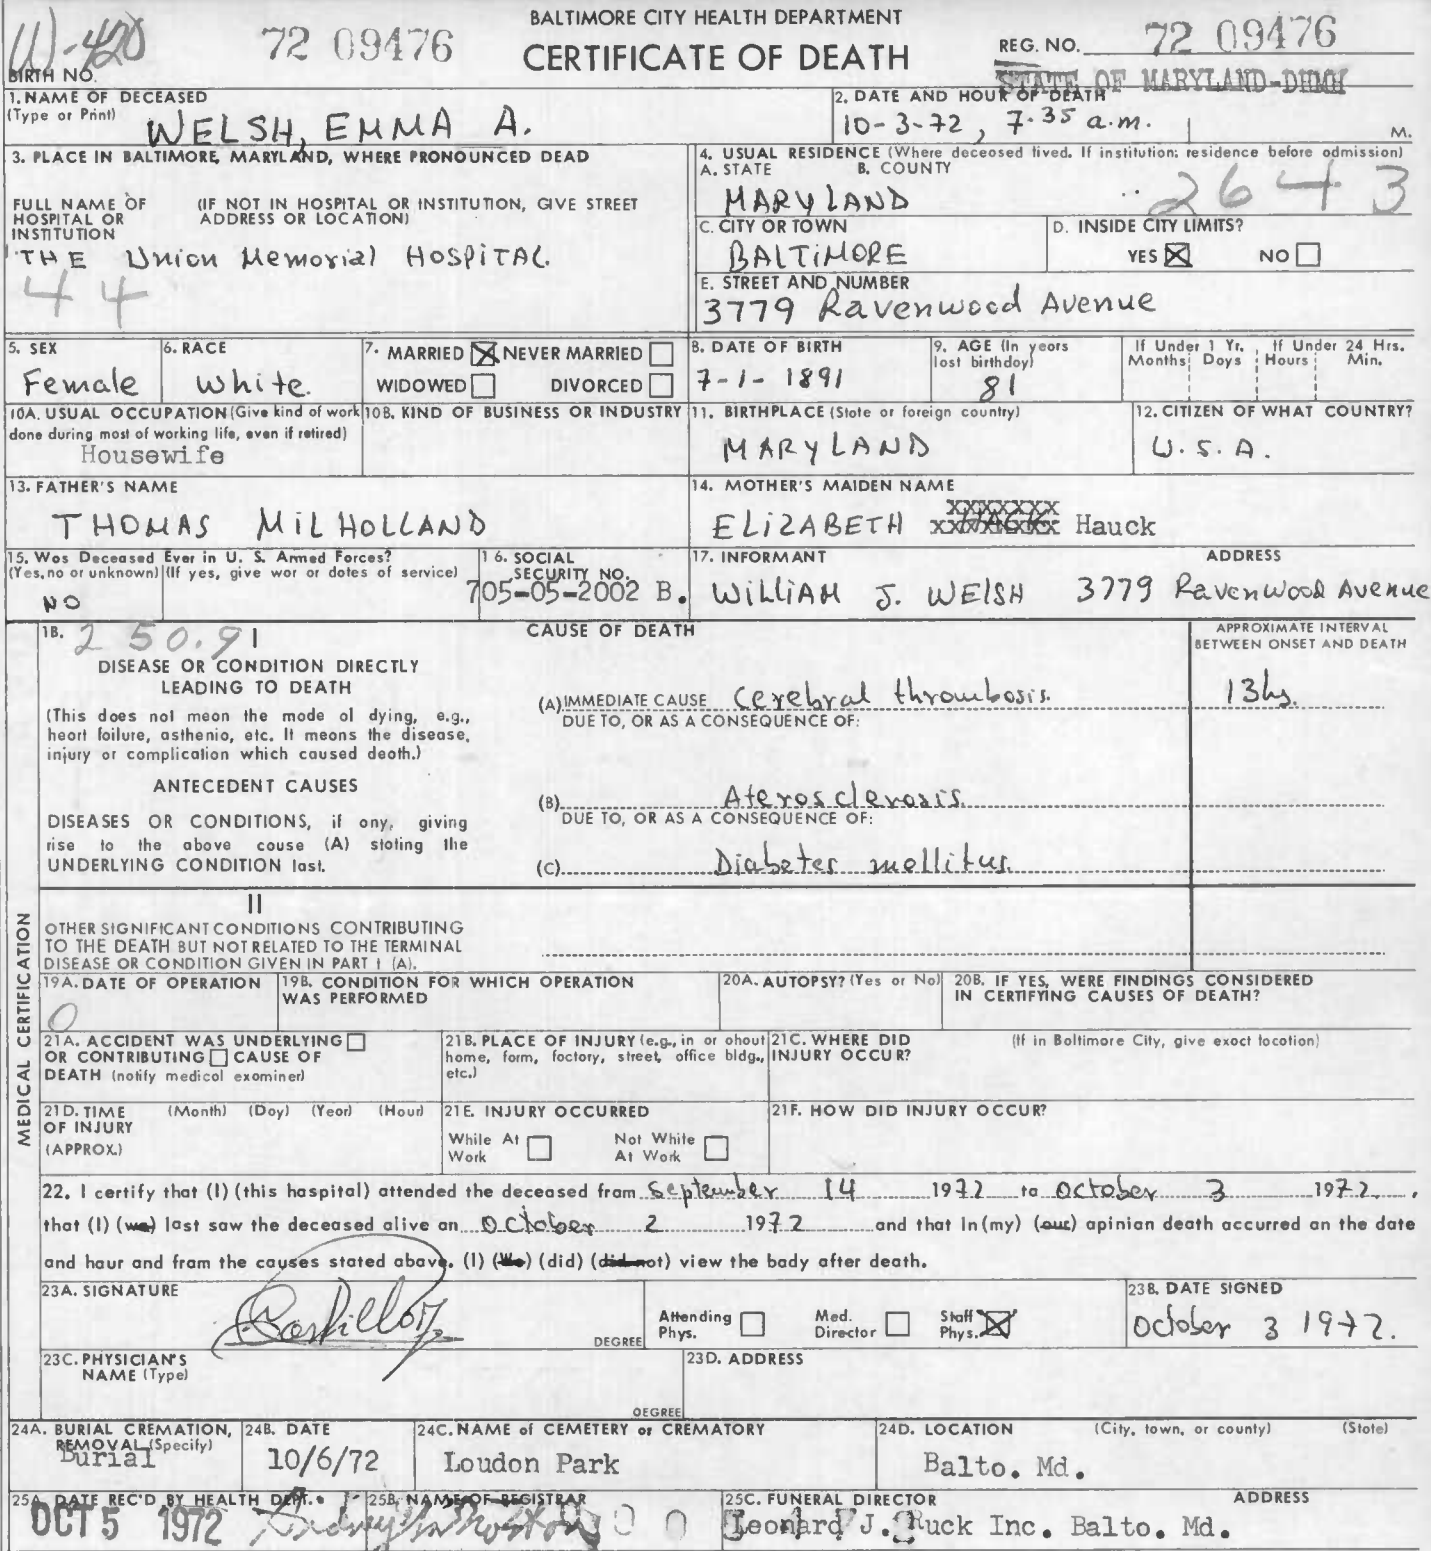 BALTIMORE CITY HEALTH DEPARTMENT
W-420 72 09476 CERTIFICATE OF DEATH REG. NO. 72 09476
BIRTH NO. STATE OF MARYLAND-DHMH
1. NAME OF DECEASED (Type or Print) WELSH, EMMA A.
2. DATE AND HOUR OF DEATH 10-3-72, 7.35 a.m. M.
3. PLACE IN BALTIMORE, MARYLAND, WHERE PRONOUNCED DEAD
FULL NAME OF HOSPITAL OR INSTITUTION (IF NOT IN HOSPITAL OR INSTITUTION, GIVE STREET ADDRESS OR LOCATION)
THE Union Memorial HOSPITAL
44
4. USUAL RESIDENCE (Where deceased lived. If institution: residence before admission)
A. STATE B. COUNTY
MARYLAND 2643
C. CITY OR TOWN D. INSIDE CITY LIMITS?
BALTIMORE YES NO
E. STREET AND NUMBER
3779 Ravenwood Avenue
5. SEX Female
6. RACE White.
7. MARRIED NEVER MARRIED
WIDOWED DIVORCED
8. DATE OF BIRTH 7-1-1891
9. AGE (In years last birthday) 81
If Under 1 Yr. Months Days If Under 24 Hrs. Hours Min.
10A. USUAL OCCUPATION (Give kind of work done during most of working life, even if retired)
Housewife
10B. KIND OF BUSINESS OR INDUSTRY
11. BIRTHPLACE (State or foreign country)
MARYLAND
12. CITIZEN OF WHAT COUNTRY?
U.S.A.
13. FATHER'S NAME
THOMAS MILHOLLAND
14. MOTHER'S MAIDEN NAME
ELIZABETH Hauck
15. Was Deceased Ever in U. S. Armed Forces?
(Yes, no or unknown) (If yes, give war or dates of service)
NO
16. SOCIAL SECURITY NO.
705-05-2002 B.
17. INFORMANT ADDRESS
WILLIAM J. WELSH 3779 Ravenwood Avenue
MEDICAL CERTIFICATION
18. 250.9 I CAUSE OF DEATH APPROXIMATE INTERVAL BETWEEN ONSET AND DEATH
DISEASE OR CONDITION DIRECTLY
LEADING TO DEATH
(This does not mean the mode of dying, e.g.,
heart failure, asthenia, etc. It means the disease,
injury or complication which caused death.)
(A) IMMEDIATE CAUSE Cerebral thrombosis. 13hs.
DUE TO, OR AS A CONSEQUENCE OF:
ANTECEDENT CAUSES
DISEASES OR CONDITIONS, if any, giving
rise to the above cause (A) stating the
UNDERLYING CONDITION last.
(B) Aterosclerosis.
DUE TO, OR AS A CONSEQUENCE OF:
(C) Diabetes mellitus.
II
OTHER SIGNIFICANT CONDITIONS CONTRIBUTING
TO THE DEATH BUT NOT RELATED TO THE TERMINAL
DISEASE OR CONDITION GIVEN IN PART I (A).
19A. DATE OF OPERATION
0
19B. CONDITION FOR WHICH OPERATION WAS PERFORMED
20A. AUTOPSY? (Yes or No)
20B. IF YES, WERE FINDINGS CONSIDERED IN CERTIFYING CAUSES OF DEATH?
21A. ACCIDENT WAS UNDERLYING
OR CONTRIBUTING CAUSE OF
DEATH (notify medical examiner)
21B. PLACE OF INJURY (e.g., in or about home, farm, factory, street, office bldg., etc.)
21C. WHERE DID INJURY OCCUR? (If in Baltimore City, give exact location)
21D. TIME OF INJURY (APPROX.) (Month) (Day) (Year) (Hour)
21E. INJURY OCCURRED
While At Work Not While At Work
21F. HOW DID INJURY OCCUR?
22. I certify that (I) (this hospital) attended the deceased from September 14 1972 to October 3 1972,
that (I) (we) last saw the deceased alive on October 2 1972 and that in (my) (our) opinian death accurred on the date
and hour and from the causes stated above. (I) (We) (did) (did not) view the body after death.
23A. SIGNATURE DEGREE
Attending Phys. Med. Director Staff Phys.
23B. DATE SIGNED
October 3 1972.
23C. PHYSICIAN'S NAME (Type) DEGREE
23D. ADDRESS
24A. BURIAL CREMATION, REMOVAL (Specify)
Burial
24B. DATE
10/6/72
24C. NAME of CEMETERY or CREMATORY
Loudon Park
24D. LOCATION (City, town, or county) (State)
Balto. Md.
25A. DATE REC'D BY HEALTH DEPT.
OCT 5 1972
25B. NAME OF REGISTRAR
25C. FUNERAL DIRECTOR ADDRESS
Leonard J. Ruck Inc. Balto. Md.